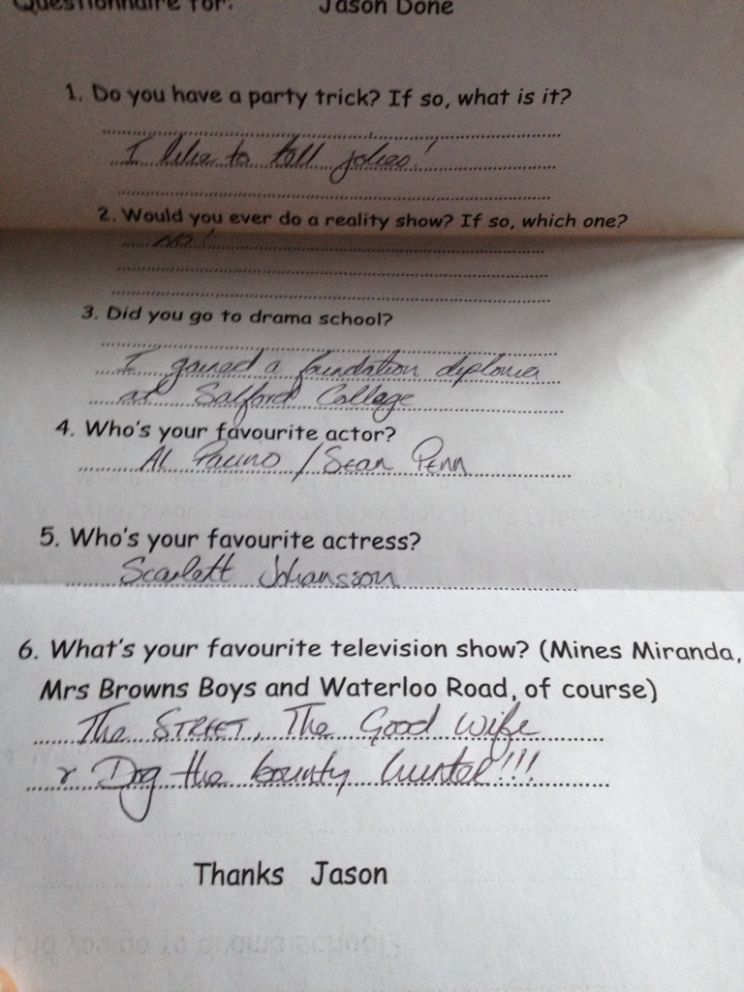 Questionnaire for: Jason Done
1. Do you have a party trick? If so, what is it?
I like to tell jokes!
2. Would you ever do a reality show? If so, which one?
NO!
3. Did you go to drama school?
I gained a foundation diploma
at Salford College
4. Who's your favourite actor?
Al Pacino / Sean Penn
5. Who's your favourite actress?
Scarlett Johansson
6. What's your favourite television show? (Mines Miranda,
Mrs Browns Boys and Waterloo Road, of course)
The STREET, The Good Wife
& Dog the bounty hunter!!!
Thanks Jason